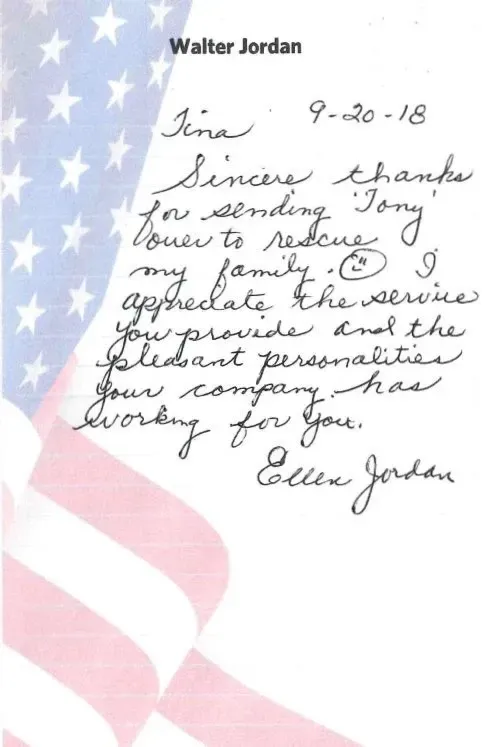 Walter Jordan
Tina 9-20-18
Sincere thanks
for sending 'Tony'
over to rescue
my family. I
appreciate the service
you provide and the
pleasant personalities
your company has
working for you.
Ellen Jordan